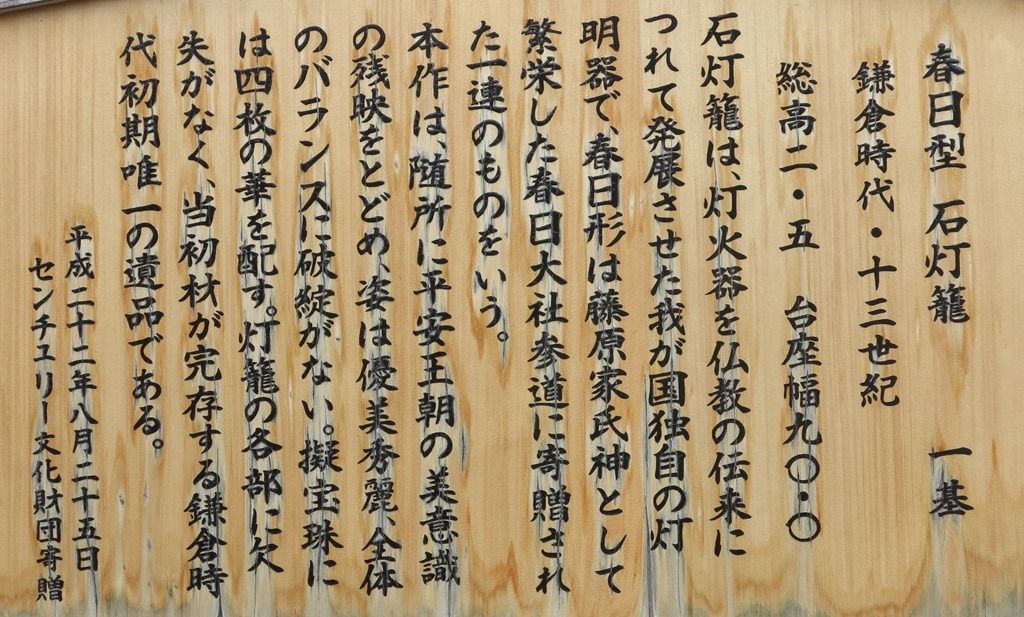 春日型 石灯籠 一基
鎌倉時代・十三世紀
総高二・五 台座幅九〇・〇
石灯籠は、灯火器を仏教の伝来に
つれて発展させた我が国独自の灯
明器で、春日形は藤原家氏神として
繁栄した春日大社参道に寄贈され
た一連のものをいう。
本作は、随所に平安王朝の美意識
の残映をとどめ、姿は優美秀麗、全体
のバランスに破綻がない。擬宝珠に
は四枚の華を配す。灯籠の各部に欠
失がなく、当初材が完存する鎌倉時
代初期唯一の遺品である。
平成二十二年八月二十五日
センチュリー文化財団寄贈